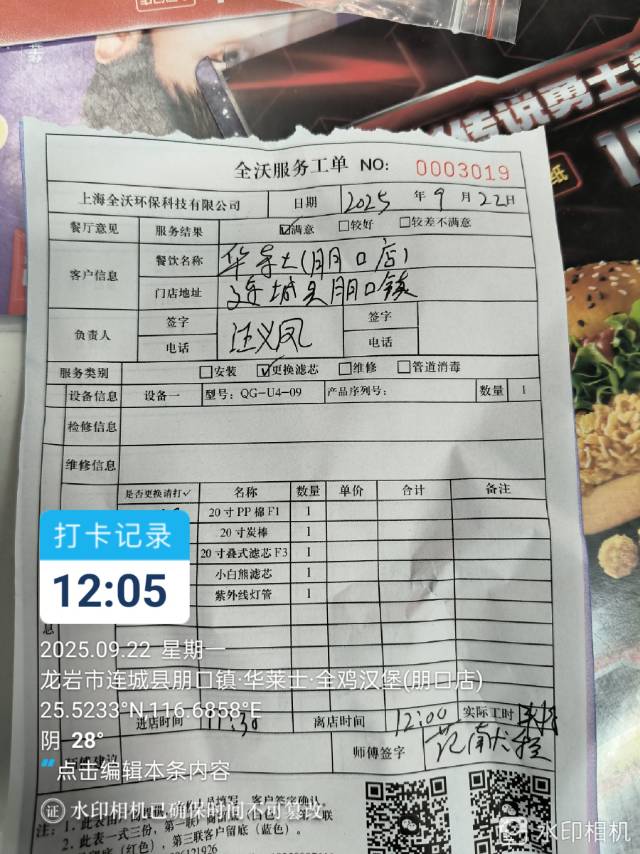 传说勇士
全沃服务工单 NO: 0003019
上海全沃环保科技有限公司 日期 2025 年 9 月 22 日
餐厅意见 服务结果 ☑满意 □较好 □较差不满意
客户信息 餐饮名称 华莱士(朋口店)
门店地址 连城县朋口镇
负责人 签字 汪义凤 签字
电话 电话
服务类别 □安装 ☑更换滤芯 □维修 □管道消毒
设备信息 设备一 型号: QG-U4-09 产品序列号: 数量 1
检修信息
维修信息
是否更换请打✓ 名称 数量 单价 合计 备注
20寸PP棉F1 1
20寸炭棒 1
20寸叠式滤芯F3 1
小白熊滤芯 1
紫外线灯管 1
息
打卡记录
12:05
2025.09.22 星期一
龙岩市连城县朋口镇·华莱士·全鸡汉堡(朋口店)
25.5233°N,116.6858°E
进店时间 11:30 离店时间 12:00 实际工时
阴 28°
建议 师傅签字
点击编辑本条内容
证 水印相机已确保时间不可篡改
客户签字确认。
注: 1. 此表
2. 此表一式三份, 第一联
(红色), 第三联客户留底(蓝色)。
水印相机